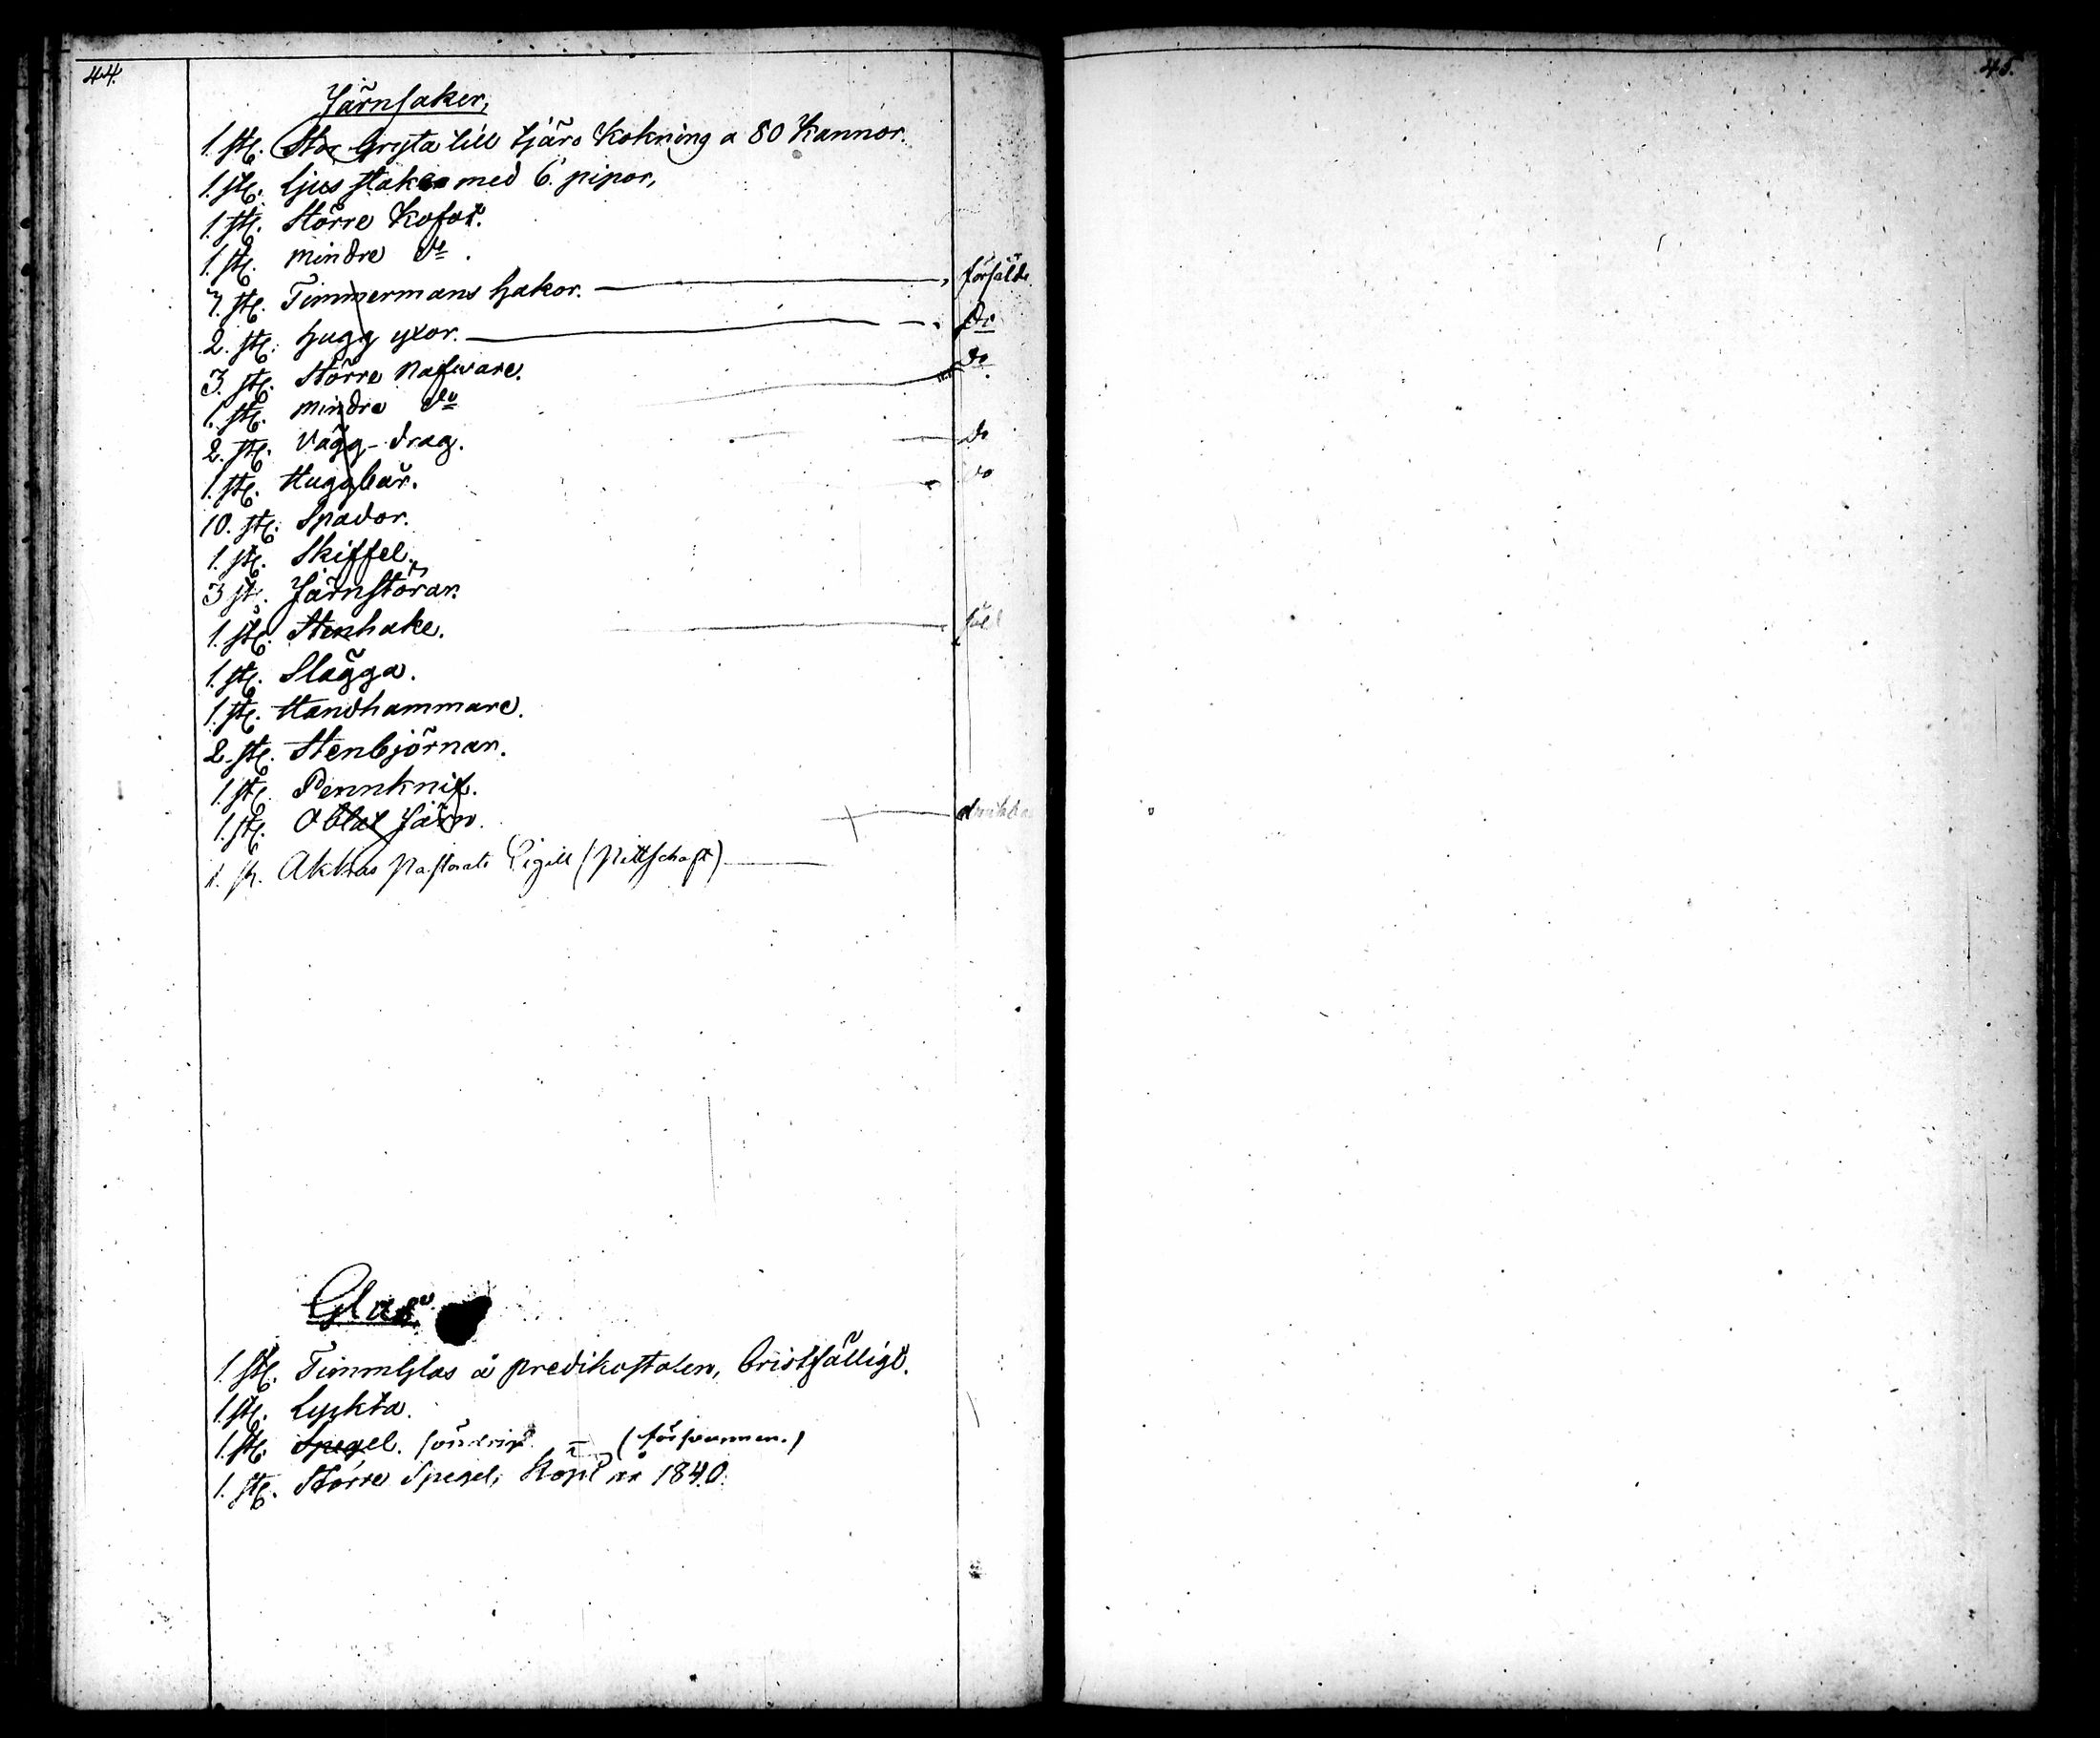 44.
45.
Järnsaker,
1. st. Stor Gryta till tjäro Kokning a 80 Kannor.
1. st. Ljus staken med 6. pipor,
1. st. Större Kofot.
1. st. mindre do.
7. st. Timmermans hakor. försålde
2. st. hugg yxor. do
3. st. Större nafware. do
1. st. mindre do
2. st. Vägg-drag. do
1. st. Huggbär. do
10. st. Spador.
1. st. Skiffel.
3 st. Järnstörar.
1. st. Stenhake. såld
1. st. Slägga.
1. st. Handhammare.
2. st. Stenbjörnar.
1. st. Pennknif.
1. st. Oblat Järn.
1. st. Pastorats Sigill (Pittschaft)
Glas
1. st. TimmGlas å predikostolen, bristfälligt.
1. st. Lyckta.
1. st. Spegel. söndrig. (försvunnen.)
1. st. Större Spegel, Köpt år 1840.